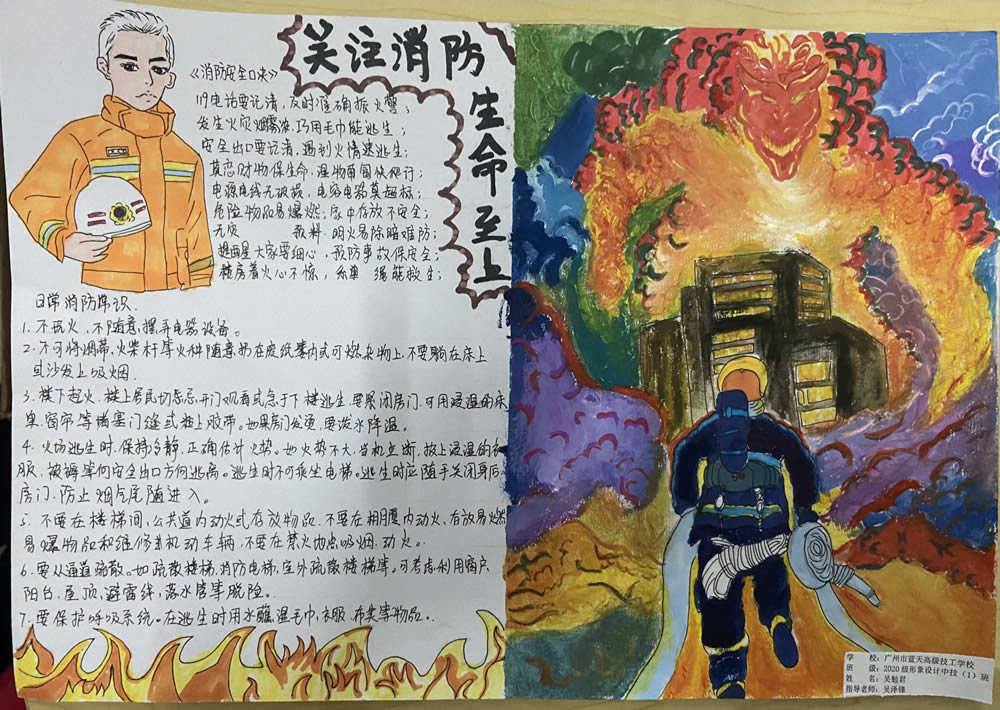 关注消防
生命至上
《消防安全口诀》
119电话要记清,及时准确报火警;
发生火灾烟雾浓,巧用毛巾能逃生;
安全出口要记清,遇到火情速逃生;
莫恋财物保生命,湿物毒圈快爬行;
电源电线无破损,电容电器莫超标;
危险物品易爆燃;家中存放不安全;
明火易除暗难防;
大家要细心,预防事故保安全;
着火心不惊,绳能救生;
日常消防常识.
1. 不玩火、不随意摆弄电器设备。
2. 不可将烟蒂、火柴杆等火种随意扔在废纸篓内或可燃杂物上,不要躺在床上
且沙发上吸烟.
3. 楼下起火,楼上居民切忌忌开门观看或急于下楼逃生,要紧闭房门,可用浸湿的床
单、窗帘等堵塞门缝或粘上胶带。如果房门发烫,要泼水降温。
4. 火场逃生时,保持冷静,正确估计火势。如火势不大,当机立断,披上浸湿的衣
服、被褥等向安全出口方向逃离。逃生时不可乘坐电梯。逃生时应随手关闭身后
房门,防止烟气尾随进入。
5. 不要在楼梯间、公共道内动火或存放物品,不要在棚厦内动火、存放易燃
易爆物品和维修机动车辆,不要在禁火地点吸烟、动火。
6. 要从通道疏散。如疏散楼梯、消防电梯、室外疏散楼梯等。可考虑利用窗户、
阳台、屋顶、避雷线、落水管等脱险。
7. 要保护呼吸系统。在逃生时用水蘸湿毛巾、衣服、布类等物品。
学 校:广州市蓝天高级技工学校
班 级:2020级形象设计中技(1)班
姓 名:吴勉君
指导老师:吴泽锋